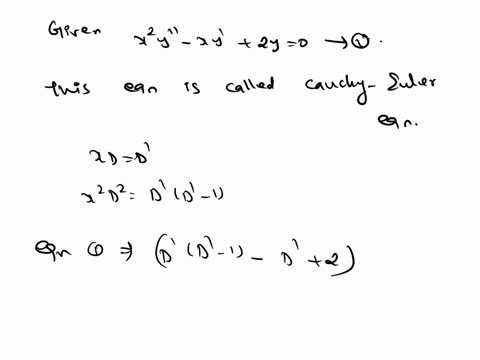 Given x²y'' - xy' + 2y = 0 → ①.
this eqn is called cauchy-Euler
eqn.
xD = D'
x²D² = D'(D'-1)
eqn ① ⇒ (D'(D'-1) - D' + 2)